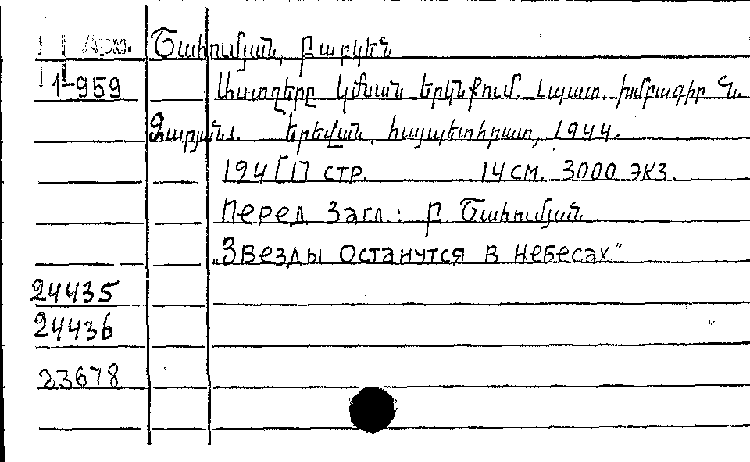 Арм. Շահումյան, Բարկեն
1-959 Աստղերը կմնան երկնքում. Նապատ. խմբագիր Գ.
Զարյանն. Երեվան, հայպետհրատ, 1944.
194 [1] стр. 14 см. 3000 экз.
Перед загл.: Բ Շահումյան
„Звезды останутся в небесах"
24435
24436
23678